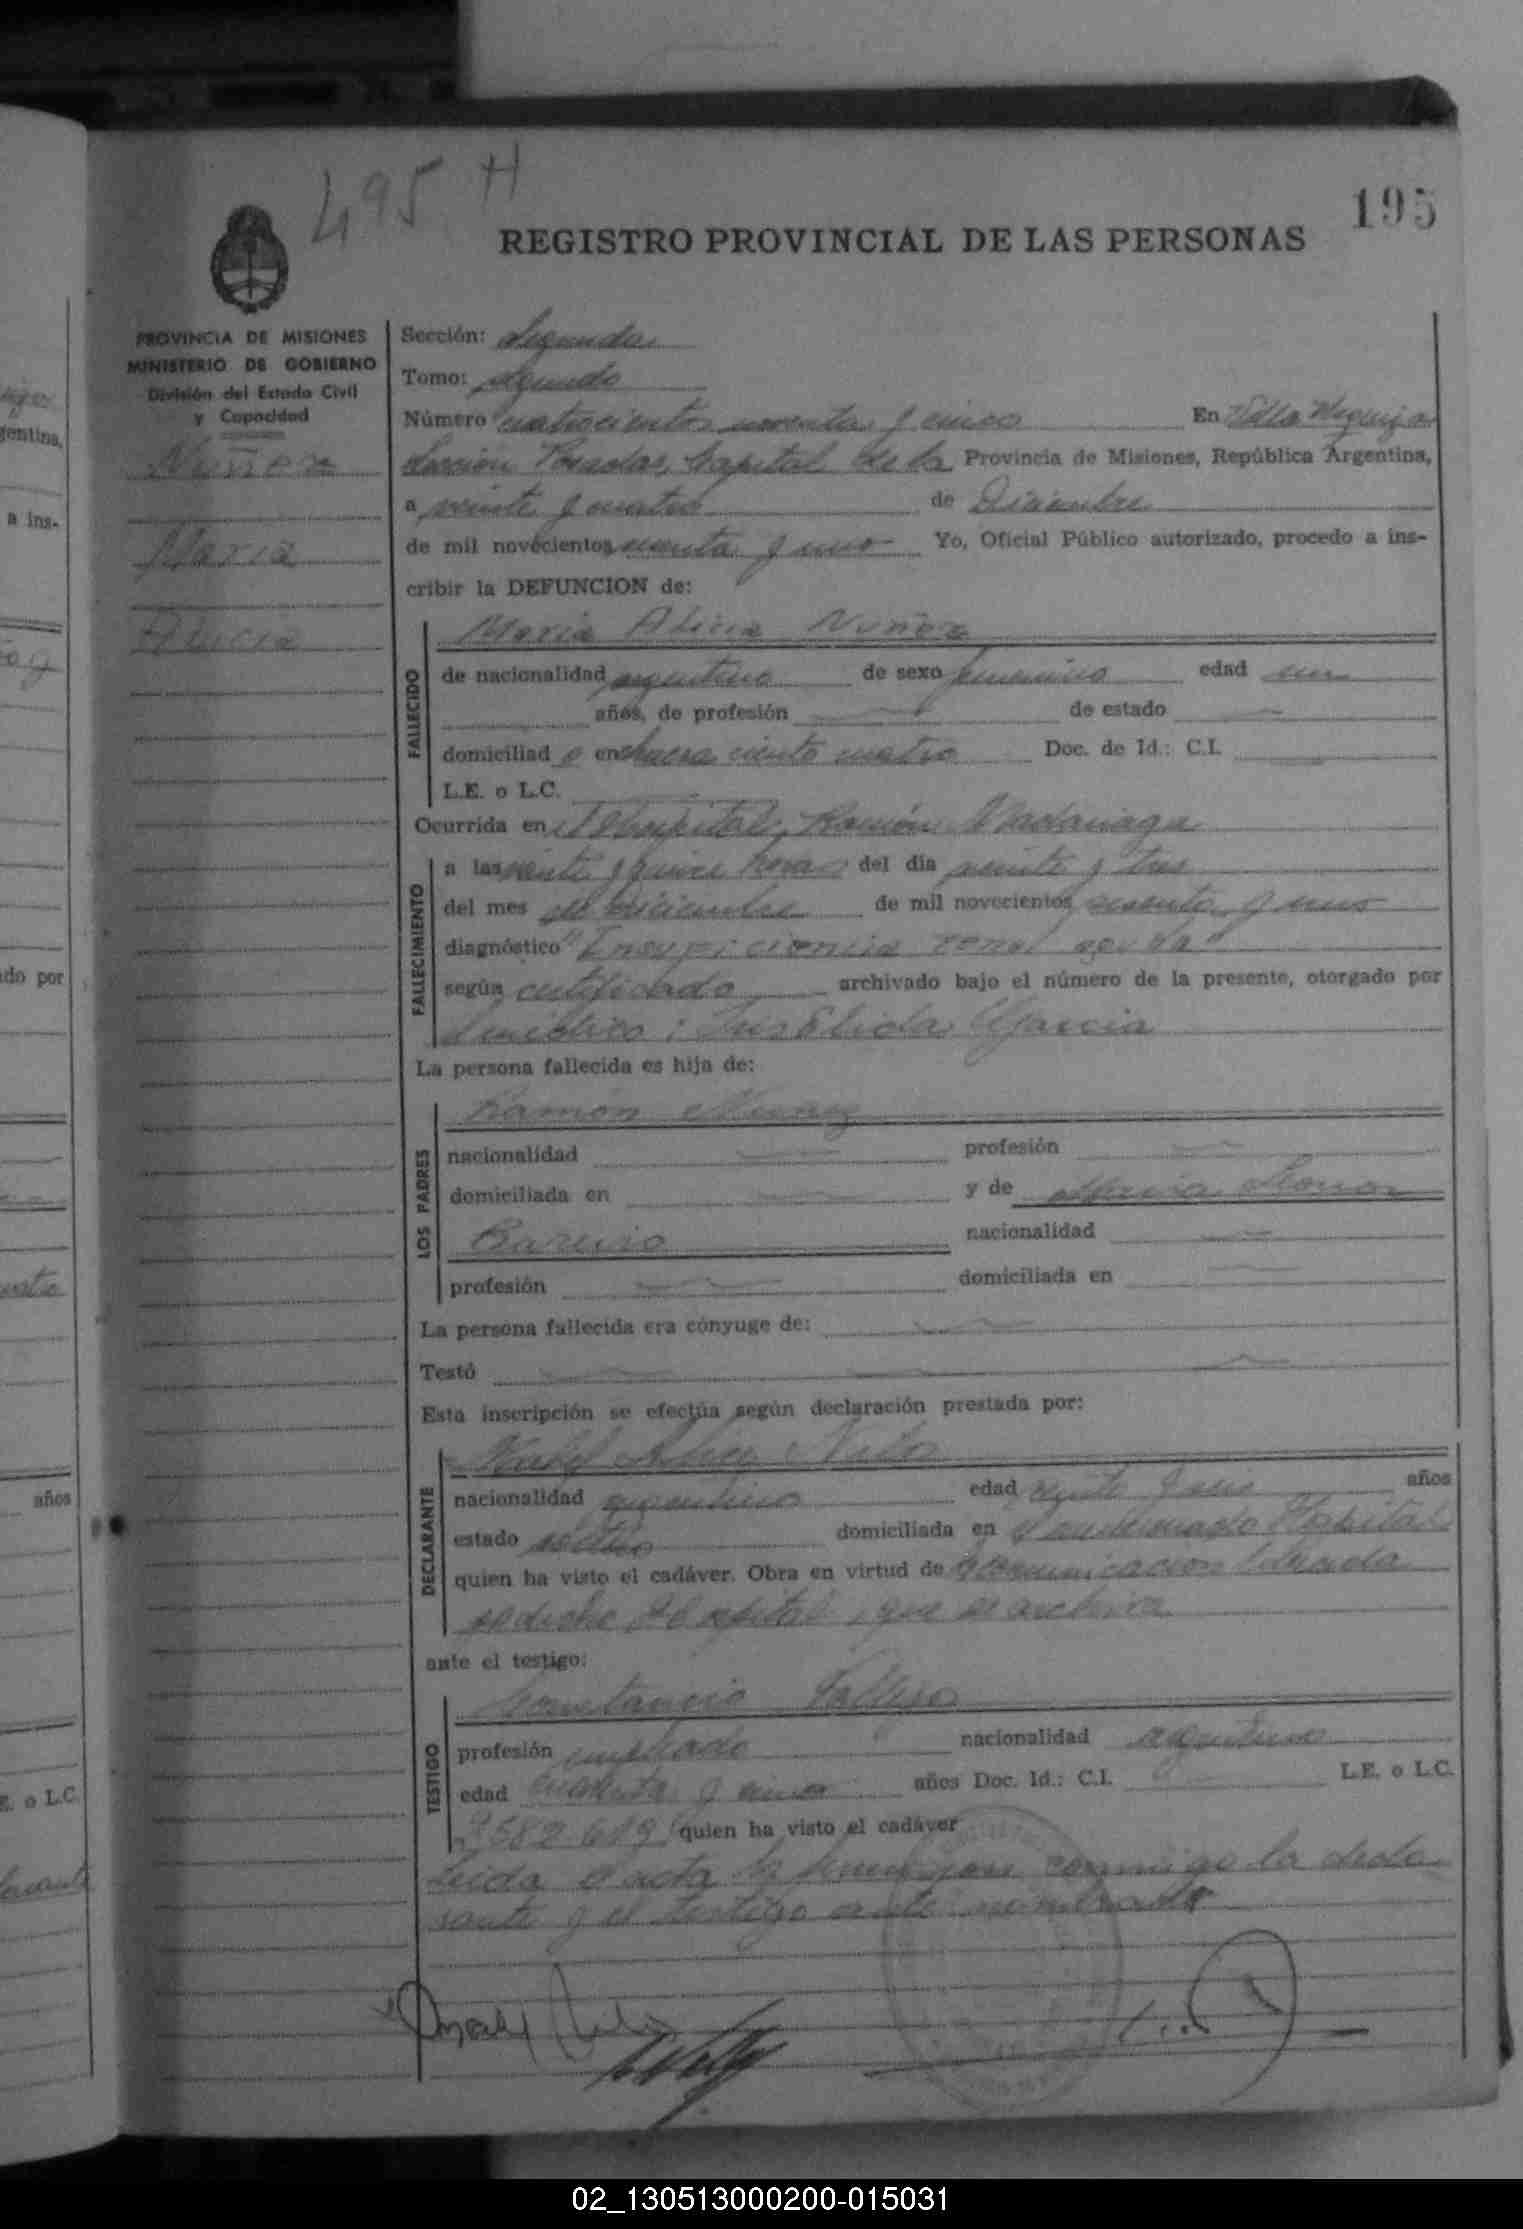 495 H
195
REGISTRO PROVINCIAL DE LAS PERSONAS
PROVINCIA DE MISIONES
MINISTERIO DE GOBIERNO
División del Estado Civil
y Capacidad
Nuñez
Maria
Alicia
Sección: Segunda
Tomo: segundo
Número cuatrocientos noventa y cinco En Villa Urquiza
Sección Posadas, Capital de la Provincia de Misiones, República Argentina,
a veinte y cuatro de Diciembre
de mil novecientos sesenta y uno Yo, Oficial Público autorizado, procedo a ins-
cribir la DEFUNCION de:
Maria Alicia Nuñez
FALLECIDO
de nacionalidad argentina de sexo femenino edad un
años, de profesión de estado
domiciliad o en chacra ciento cuatro Doc. de Id.: C.I.
L.E. o L.C.
Ocurrida en el Hospital Ramón Madariaga
FALLECIMIENTO
a las veinte y quince horas del día veinte y tres
del mes de Diciembre de mil novecientos sesenta y uno
diagnóstico "Insuficiencia renal aguda"
según certificado archivado bajo el número de la presente, otorgado por
el médico: Luis Elida Garcia
La persona fallecida es hija de:
LOS PADRES
Ramón Nuñez
nacionalidad profesión
domiciliada en y de Maria
nacionalidad
profesión domiciliada en
La persona fallecida era cónyuge de:
Testó
Esta inscripción se efectúa según declaración prestada por:
DECLARANTE
nacionalidad argentino edad veinte y seis años
estado soltero domiciliada en el mencionado Hospital
quien ha visto el cadáver. Obra en virtud de la comunicación librada
por dicho Hospital, que se archiva
ante el testigo:
TESTIGO
Constancio Vallejos
profesión empleado nacionalidad argentino
edad cuarenta y cinco años Doc. Id.: C.I. L.E. o L.C.
quien ha visto el cadáver
Leida el acta la firman conmigo la decla
rante y el testigo ante nombrado
02_130513000200-015031